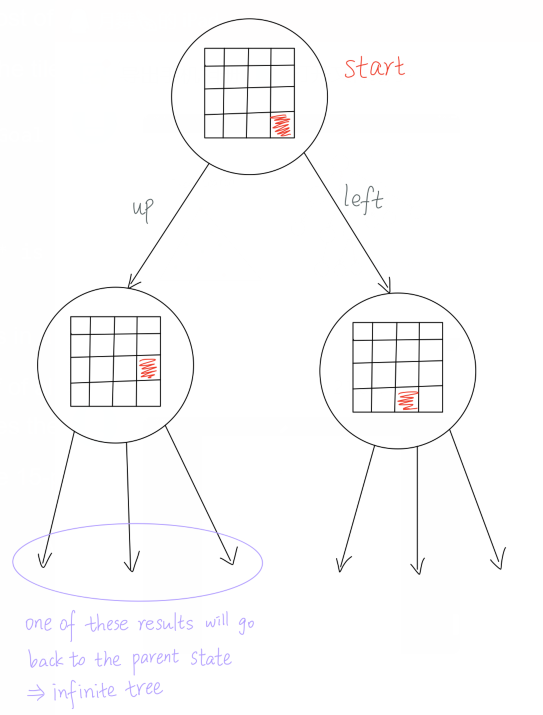 start
up
left
one of these results will go
back to the parent state
⇒ infinite tree